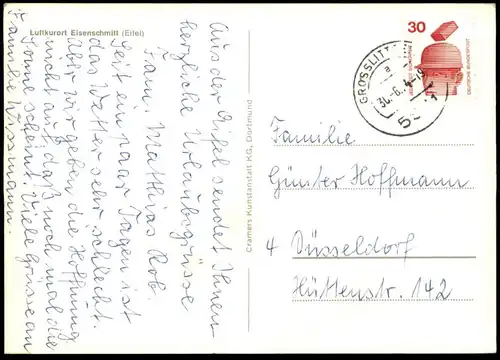 Luftkurort Eisenschmitt (Eifel)
Aus der Eifel sendet Ihnen
herzliche Urlaubsgrüsse
Fam. Matthias Rob.
Seit ein paar Tagen ist
das Wetter sehr schlecht.
Aber wir geben die Hoffnung
nicht auf, daß noch mal die
Sonne scheint. Viele Grüsse an
Familie Wissmann.
Cramers Kunstanstalt KG, Dortmund
30
DEUTSCHE BUNDESPOST
GROSSLITT
a
30.-6.
Familie
Günter Hoffmann
4 Düsseldorf
Hüttenstr. 142